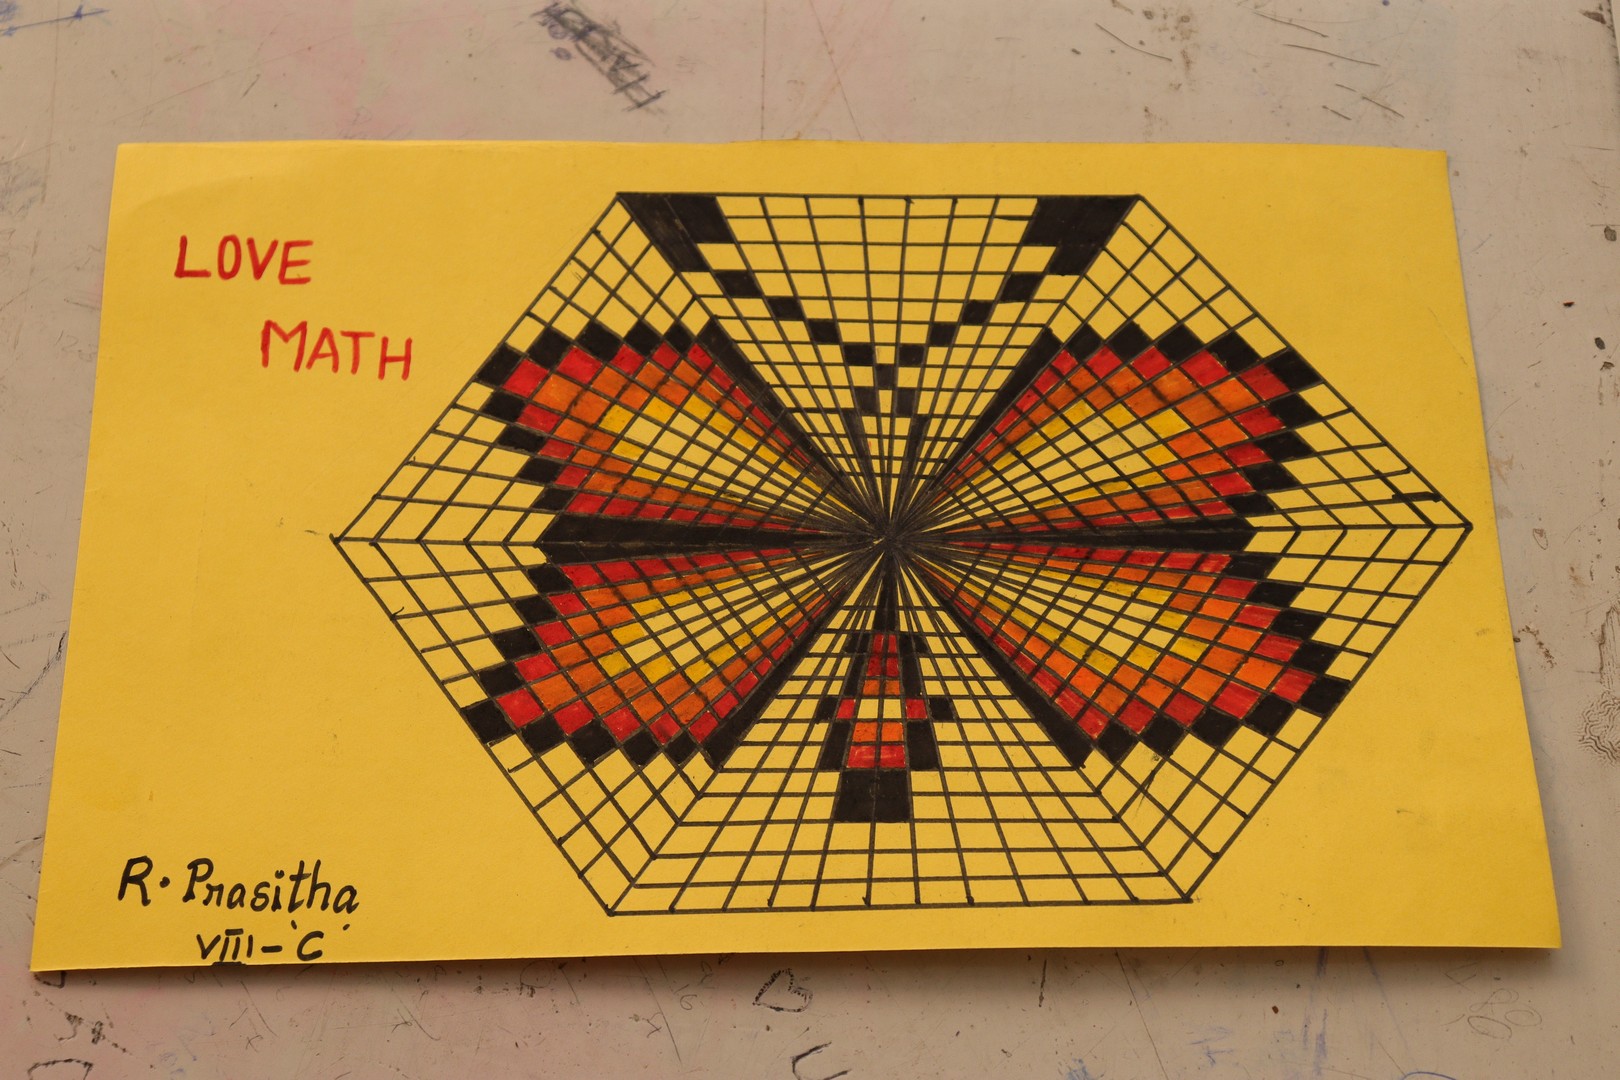 LOVE
MATH
R. Prasitha
VIII-'C'